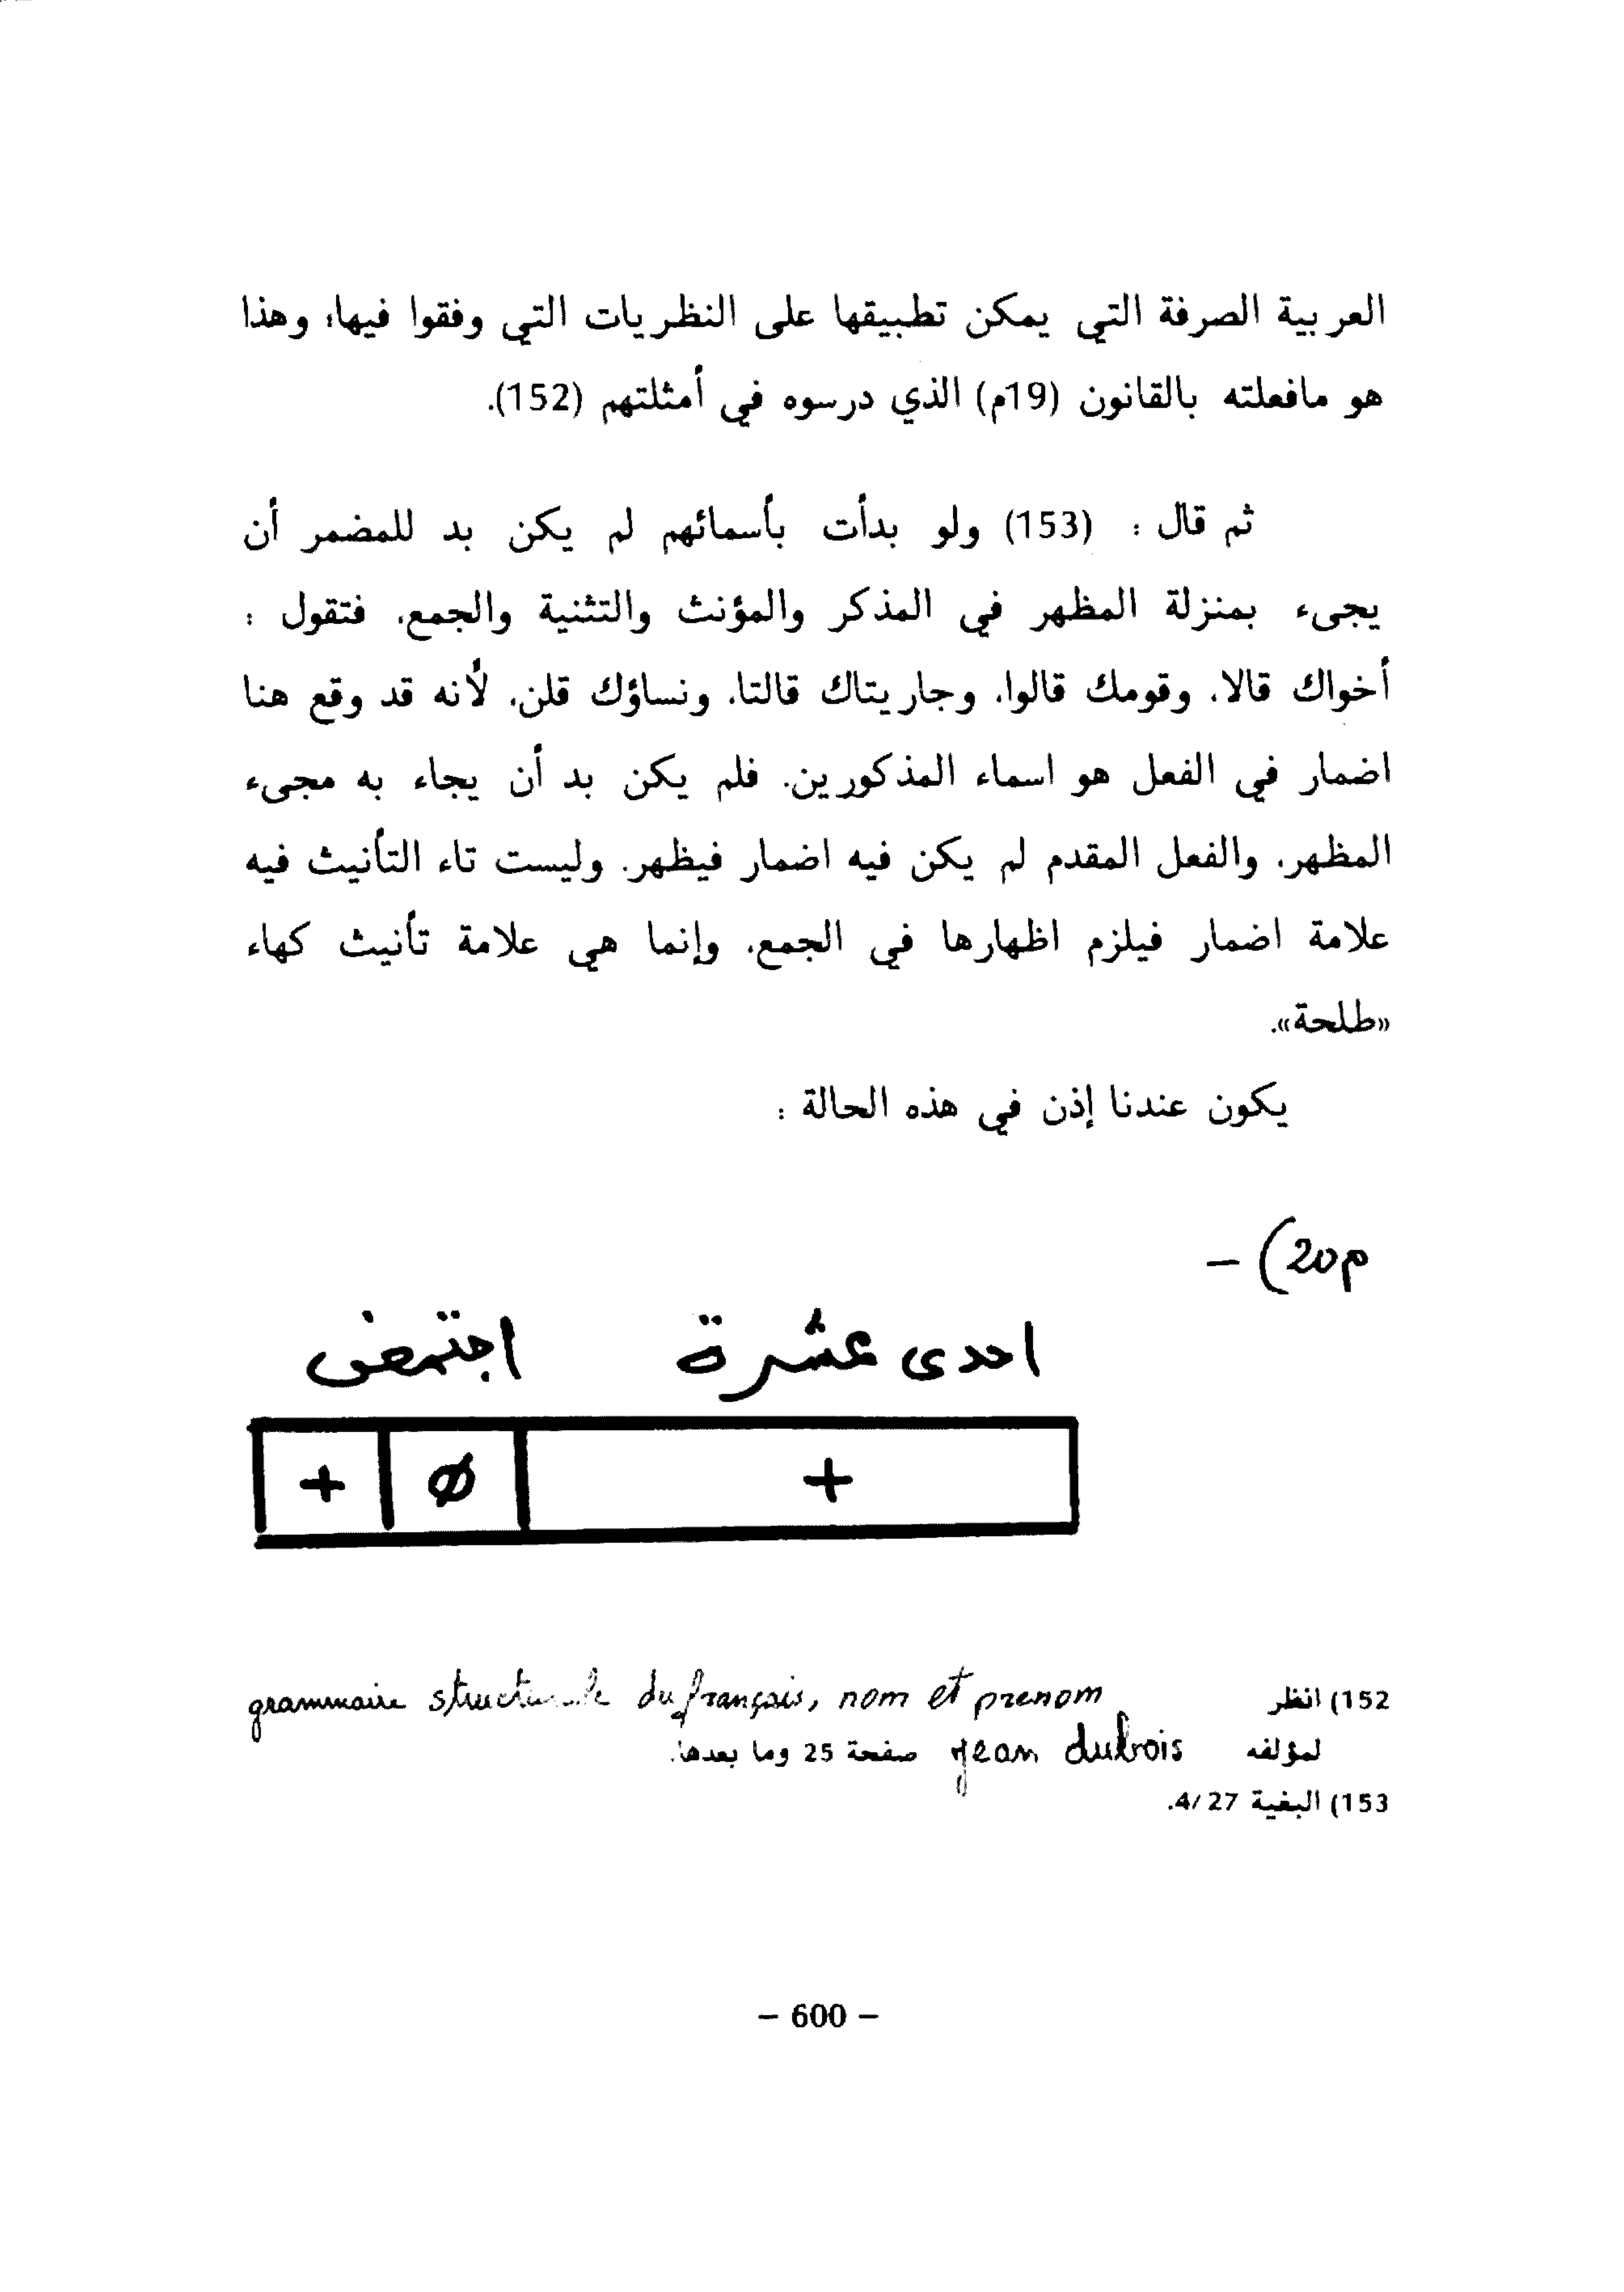 العربية الصرفة التي يمكن تطبيقها على النظريات التي وفقوا فيها، وهذا
هو مافعلته بالقانون (19م) الذي درسوه في أمثلتهم (152).
ثم قال : (153) ولو بدأت بأسمائهم لم يكن بد للمضمر أن
يجىء بمنزلة المظهر في المذكر والمؤنث والتثنية والجمع، فتقول :
أخواك قالا، وقومك قالوا، وجاريتاك قالتا، ونساؤك قلن، لأنه قد وقع هنا
اضمار في الفعل هو اسماء المذكورين. فلم يكن بد أن يجاء به مجىء
المظهر، والفعل المقدم لم يكن فيه اضمار فيظهر. وليست تاء التأنيث فيه
علامة اضمار فيلزم اظهارها في الجمع، وإنما هي علامة تأنيث كهاء
«طلحة».
يكون عندنا إذن في هذه الحالة :
م20) –
احدى عشرة اجتمعن
+ Ø +
152) انظر grammaire structurale du français, nom et prenom
لمؤلفه Jean dubois صفحة 25 وما بعدها.
153) البغية 27 /4.
– 600 –